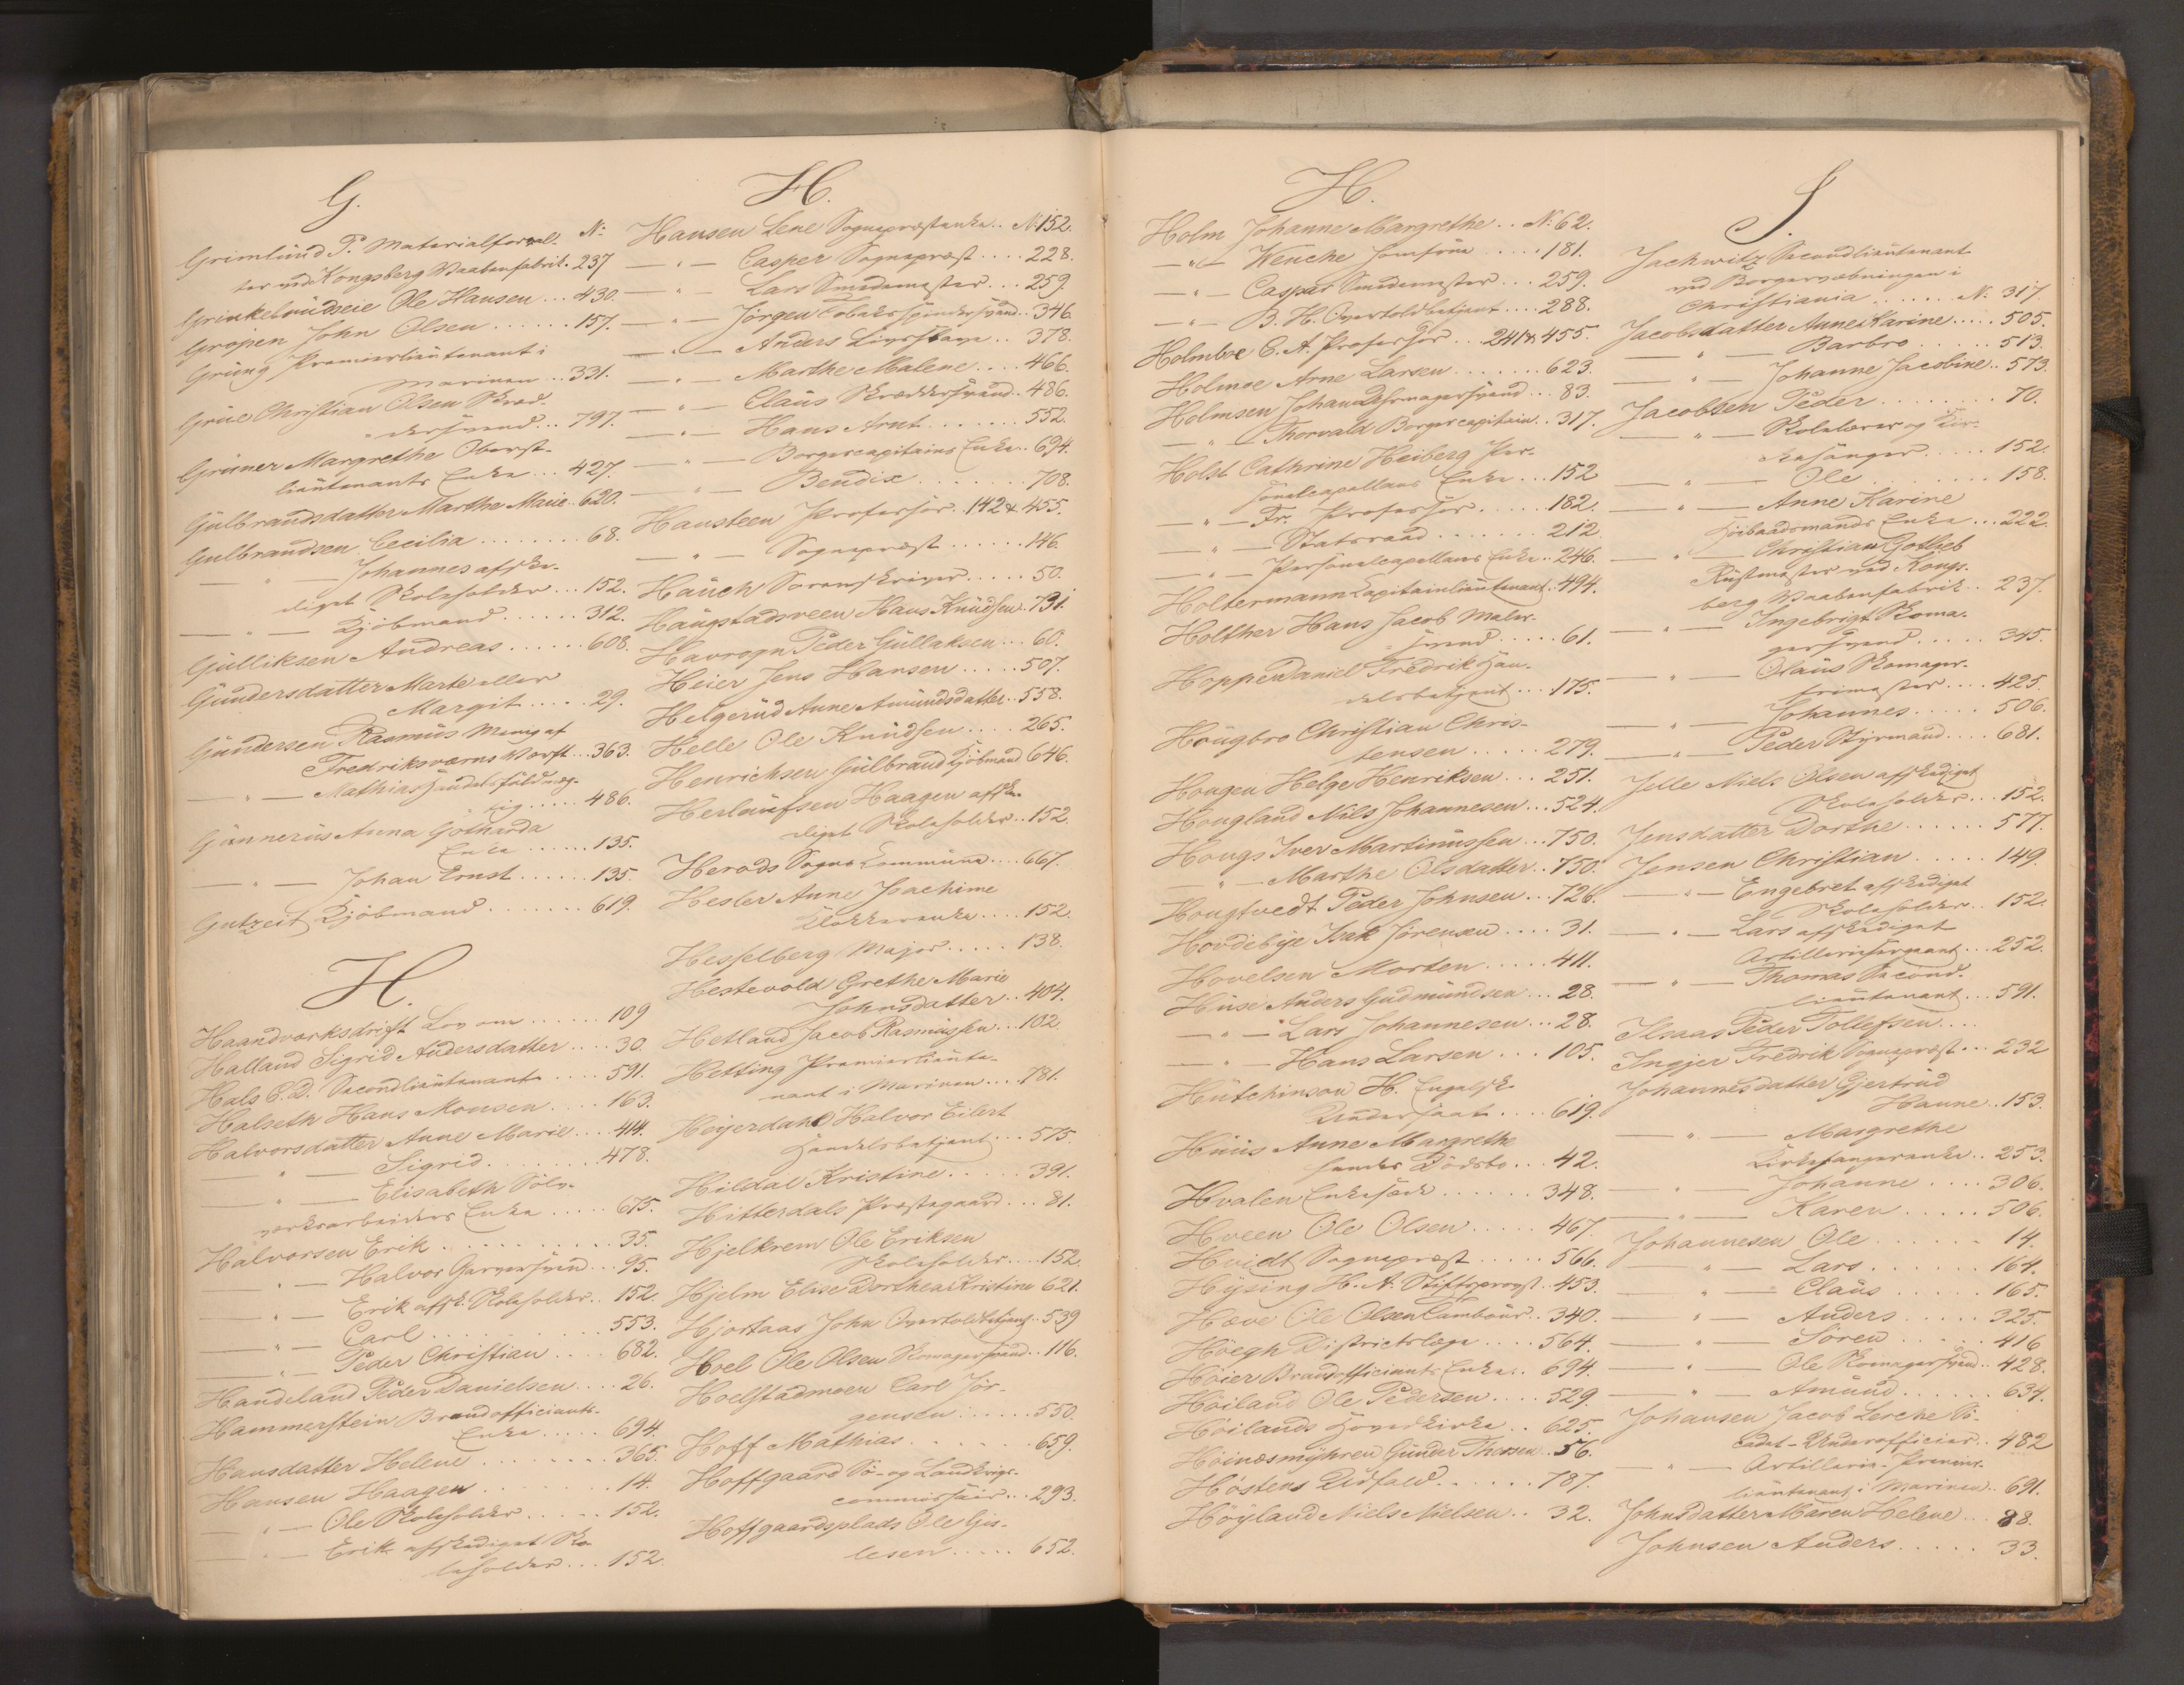 G.
Grimlund P. Materialforval- No
ter ved Kongsberg Vaabenfabrik. 237
Grinkelsrudseie Ole Hansen ... 430.
Gropen John Olsen ...... 157.
Grüng Premierlieutenant i
Marinen .. 331.
Grue Christian Olsen Skræd-
dersvend ... 797.
Grüner Margrethe Oberst-
lieutenants Enke ... 427.
Gulbrandsdatter Marthe Marie. 620.
Gulbrandsen Cecilia ........ 68.
— " — Johannes afske-
diget Skoleholder ... 152.
— " — Kjøbmand ...... 312.
Gulliksen Andreas ...... 608.
Gundersdatter Marte eller
Margit .... 29.
Gundersen Rasmus Menig af
Fredriksværns Værft ... 363.
— " — Mathias Handelsfuldmæg-
tig ..... 486.
Gunnerus Anna Gotharda
Enke ...... 135.
— " — Johan Ernst ...... 135.
Gutzeit Kjøbmand ........ 619.
H.
Haandværksdrift Lov om ...... 109
Halland Sigrid Andersdatter .... 30.
Hals C. D. Secondlieutenant .... 591.
Halseth Hans Monsen .... 163.
Halvorsdatter Anne Marie ... 414.
— " — Sigrid ........ 478.
— " — Elisabeth Sølv-
verksarbeiders Enke ..... 675.
Halvorsen Erik ............ 35.
— " — Halvor Garversvend ... 95.
— " — Erik afsk. Skoleholder .. 152.
— " — Carl ............ 553.
— " — Peder Christian .... 682.
Handeland Peder Danielsen .... 26.
Hammerstein Brandofficiants-
Enke ..... 694.
Hansdatter Helene ........ 365.
Hansen Haagen ......... 14.
— " — Ole Skoleholder ..... 152.
— " — Erik afskediget Sko-
leholder ... 152.
H.
Hansen Lene Sognepræstenke .. No 152.
— " — Casper Sognepræst .... 228.
— " — Lars Smedemester ... 259.
— " — Jørgen Tobaksspindersvend .. 346.
— " — Anders Livsslave .. 378.
— " — Marthe Malene .... 466.
— " — Claus Skræddersvend .. 486.
— " — Hans Arnt ....... 552.
— " — Borgercapitains Enke .. 694.
— " — Bendix ........ 708.
Hansteen Professor .. 142 & 455.
— " — Sognepræst ...... 146.
Hauch Sorenskriver ..... 50.
Haugstadsveen Hans Knudsen . 731.
Peder Gullaksen ... 60.
Heier Jens Hansen ..... 507.
Helgerud Anne Amundsdatter .. 558.
Helle Ole Knudsen .... 265.
Henrichsen Gulbrand Kjøbmand 646.
Herlaufsen Haagen afske-
diget Skoleholder .. 152.
Herøds Sogns Commune .... 667.
Hesler Anne Joachime
Klokkerenke .... 152.
Hesselberg Major ..... 138.
Hestevold Grethe Marie
Johnsdatter .. 404.
Hetland Jacob Rasmussen ... 102.
Hetting Premierlieute-
nant i Marinen .... 781.
Heyerdahl Halvor Eilert
Handelsbetjent ... 575.
Hildal Kristine ...... 391.
Hitterdals Præstegaard .... 81.
Hjelkrem Ole Eriksen
Skoleholder .... 152.
Hjelm Elise Dorthea Kristine 621.
Hjortaas John Overtoldbetjent .. 539
Hoel Ole Olsen Skomagersvend .. 116.
Hoelstadmoen Carl Jør-
gensen ...... 550.
Hoff Mathias ........ 659.
Hoffgaard Sø- og Landkrigs-
commissair ... 293.
Hoffgaardsplads Ole Gis-
lesen ..... 652.
H.
Holm Johanne Margrethe .. No 62.
— " — Wenche Jomfrue ..... 181.
— " — Caspar Smedemester ... 259.
— " — B. H. Overtoldbetjent .... 288.
Holmboe C. A. Professor .. 241 & 455.
Holmoe Arne Larsen ....... 623.
Holmsen Johan Uhrmagersvend ... 83.
— " — Thorvald Borgercapitain .. 317.
Holst Cathrine Heiberg Per-
sonelcapellans Enke ... 152
— " — Fr. Professor ...... 182.
— " — Statsraad ........ 212.
— " — Personelcapellans Enke .. 246.
Holtermann Capitainlieutenant . 494.
Holther Hans Jacob Maler-
svend ..... 61.
Hoppe Daniel Fredrik Han-
delsbetjent ... 175.
Hougbro Christian Chris-
tensen ..... 279.
Hougen Helge Henriksen ... 251.
Hougland Nils Johannesen ... 524.
Hougs Iver Martinussen ... 750.
— " — Marthe Olsdatter .. 750.
Hougtvedt Peder Johnsen ... 726.
Hovdebye Isak Sørensen .... 31.
Hovelsen Morten ..... 411.
Huse Anders Gudmundsen ... 28.
— " — Lars Johannesen ... 28.
— " — Hans Larsen ... 105.
Hutchinson H. Engelsk
Undersaat .... 619.
Huus Anne Margrethe
hendes Dødsbo ... 42.
Hvalen Enkesæde ...... 348.
Hveen Ole Olsen ..... 467.
Hvidt Sognepræst ..... 566.
Hysing H. A. Stiftsprovst .. 453.
Hæve Ole Olsen Tambour .. 340.
Høegh Districtslæge .... 564.
Høier Brandofficiants Enke .. 694.
Høiland Ole Pedersen .... 529.
Høilands Hovedkirke .. 625.
Høinæsmyhren Gunder Thorsen .. 56.
Høstens Udfald ....... 787.
Høyland Niels Nielsen .. 32.
J.
Jachwitz Secondlieutenant
ved Borgervæbningen i
Christiania ...... No 317.
Jacobsdatter Anne Karine ..... 505.
— " — Barbro ..... 513.
— " — Johanne Jacobine .. 573.
Jacobsen Peder ......... 70.
— " — Skolelærer og Kir-
kesanger ..... 152.
— " — Ole ......... 158.
— " — Anne Karine
Enke ... 222.
— " — Christian Gotlieb
Rustmester ved Kongs-
berg Vaabenfabrik .. 237.
— " — Ingebrigt Skoma-
gersvend ..... 345.
— " — Olaus Skomager-
frimester .... 425.
— " — Johannes ..... 506.
— " — Peder Styrmand .... 681.
Jelle Niels Olsen afskediget
Skoleholder ... 152.
Jensdatter Dorthe ...... 577.
Jensen Christian ..... 149.
— " — Engebret afskediget
Skoleholder .. 152.
— " — Lars afskediget
Artilleriesergeant ... 252.
— " — Thomas Second-
lieutenant ... 591.
Ilsaas Peder Tollefsen ....
Ingjer Fredrik Sognepræst ... 232
Johannesdatter Gjertrud
Hanne .. 153.
— " — Margrethe
Kirkesangerenke .. 253.
— " — Johanne .... 306.
— " — Karen ..... 506.
Johannesen Ole ....... 14.
— " — Lars ....... 164.
— " — Claus ...... 165.
— " — Anders ..... 325.
— " — Søren ..... 416
— " — Ole Skomagersvend .. 428.
— " — Amund ...... 634.
Johansen Jacob Lerche Sø-
cadet-Underofficier .. 482
— " — Artillerie-Premier-
lieutenant i Marinen .. 691.
Johnsdatter Maren Helene .. 88.
Johnsen Anders ..... 33.